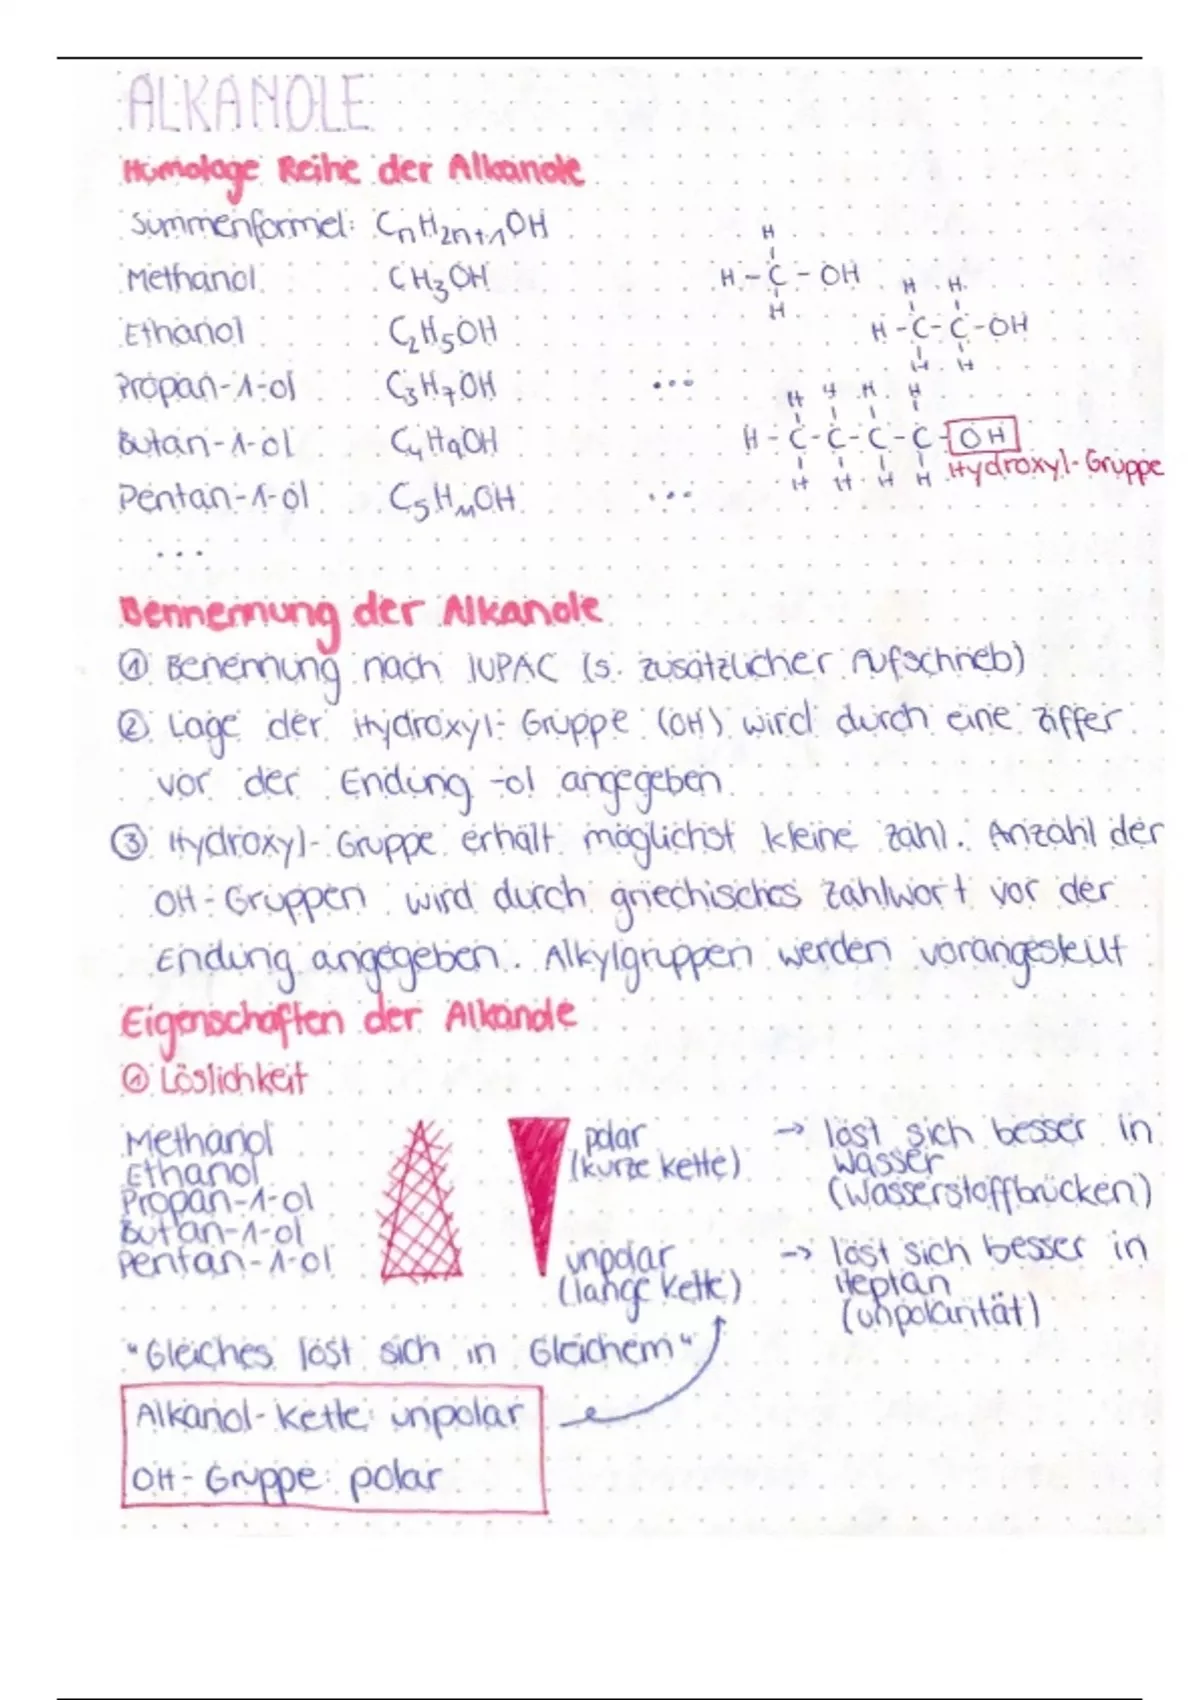 ALKANOLE
Homologe Reihe der Alkanole
Summenformel: CnH2n+1OH
Methanol CH3OH
Ethanol C2H5OH
Propan-1-ol C3H7OH ...
Butan-1-ol C4H9OH
Pentan-1-ol C5H11OH ...
...
H
H-C-OH
H
H H
H-C-C-OH
H H
H H H H
H-C-C-C-C-OH
H H H H
Hydroxyl-Gruppe
Bennennung der Alkanole
① Benennung nach IUPAC (s. zusätzlicher Aufschrieb)
② Lage der Hydroxyl-Gruppe (OH) wird durch eine Ziffer
vor der Endung -ol angegeben
③ Hydroxyl-Gruppe erhält möglichst kleine Zahl. Anzahl der
OH-Gruppen wird durch griechisches Zahlwort vor der
Endung angegeben. Alkylgruppen werden vorangestellt
Eigenschaften der Alkanole
① Löslichkeit
Methanol
Ethanol
Propan-1-ol
Butan-1-ol
Pentan-1-ol
polar
(kurze Kette)
→ löst sich besser in
Wasser
(Wasserstoffbrücken)
unpolar
(lange Kette)
→ löst sich besser in
Heptan
(unpolarität)
"Gleiches löst sich in Gleichem"
Alkanol-Kette: unpolar
OH-Gruppe: polar